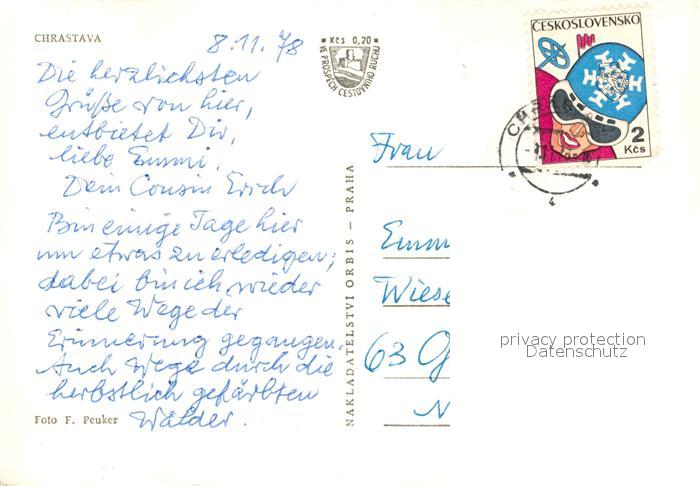 CHRASTAVA
8.11.78
Kčs 0,20
VE PROSPĚCH CESTOVNÍHO RUCHU
ČESKOSLOVENSKO
2
Kčs
Die herzlichsten
Grüße von hier,
entbietet Dir,
liebe Emmi,
Dein Cousin Erich
Bin einige Tage hier
um etwas zu erledigen;
dabei bin ich wieder
viele Wege der
Erinnerung gegangen.
Auch Wege durch die
herbstlich gefärbten
Wälder.
Foto F. Peuker
NAKLADATELSTVÍ ORBIS — PRAHA
Frau
Emm
Wiese
63 G
N
privacy protection
Datenschutz